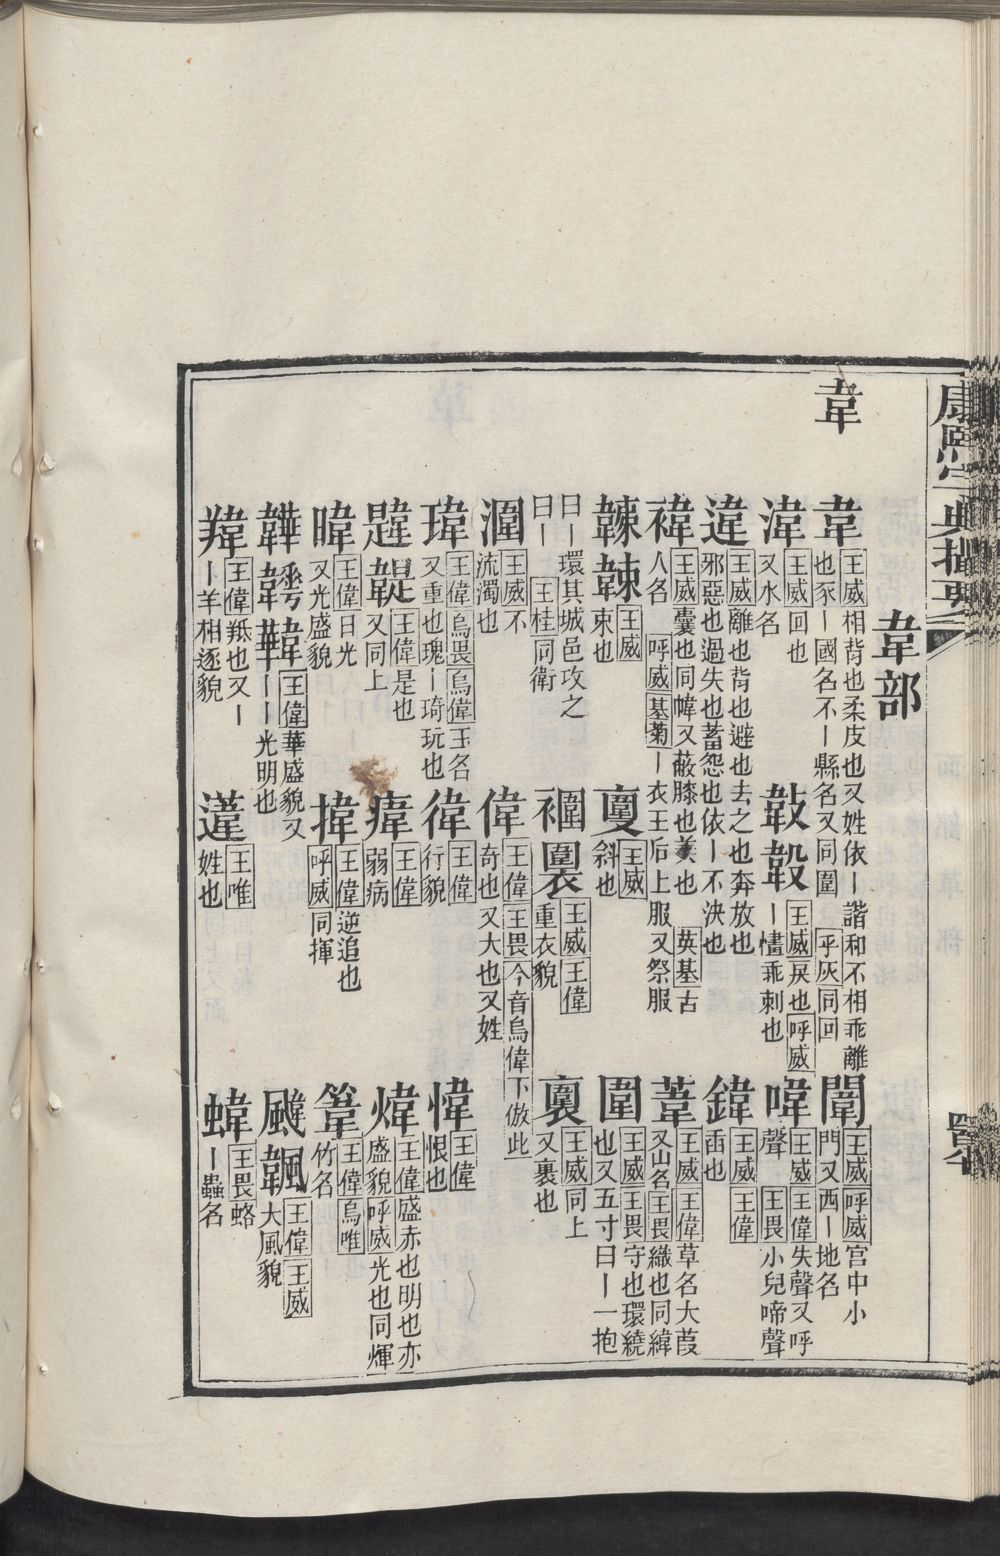 康熙字典撮要
韋部
韋
韋 王威相背也柔皮也又姓依丨諧和不相乖離
也豕丨國名不丨縣名又同圍 乎灰同回
闈 王威呼威宮中小
門又西丨地名
湋 王威回也
又水名
敼 王威戾也呼威
丨懂乖刺也
喡 王威王偉失聲又呼
聲 王畏小兒啼聲
違 王威離也背也避也去之也奔放也
邪惡也過失也蓄怨也依丨不決也
鍏 王威王偉
臿也
褘 王威囊也同幃又蔽膝也美也 英基古
人名 呼威基菊丨衣王后上服又祭服
葦 王威王偉草名大葭
又山名王畏織也同緯
韓 王威
束也
王威
斜也
圍 王威王畏守也環繞
也又五寸曰丨一抱
曰丨環其城邑攻之
曰丨 王桂同衛
王威王偉
重衣貌
王威同上
又裹也
潿 王威不
流濁也
偉 王偉王畏今音烏偉下倣此
奇也又大也又姓
瑋 王偉烏畏烏偉玉名
又重也瑰丨琦玩也
徫 王偉
行貌
愇 王偉
恨也
韙 王偉是也
又同上
痿 王偉
弱病
煒 王偉盛赤也明也亦
盛貌呼威光也同煇
暐 王偉日光
又光盛貌
揮 王偉逆追也
呼威同揮
葦 王偉烏唯
竹名
韡 王偉華盛貌又
丨丨光明也
颹 王偉王威
大風貌
羊韋 王偉羝也又丨
丨羊相逐貌
薳 王唯
姓也
蝟 王畏蛒
丨蟲名